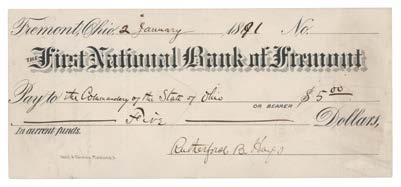 Fremont, Ohio 2 January 1891 No.
THE First National Bank of Fremont
Pay to the Commandery of the State of Ohio OR BEARER $5.00
Five Dollars,
In current funds.
Rutherford B. Hayes